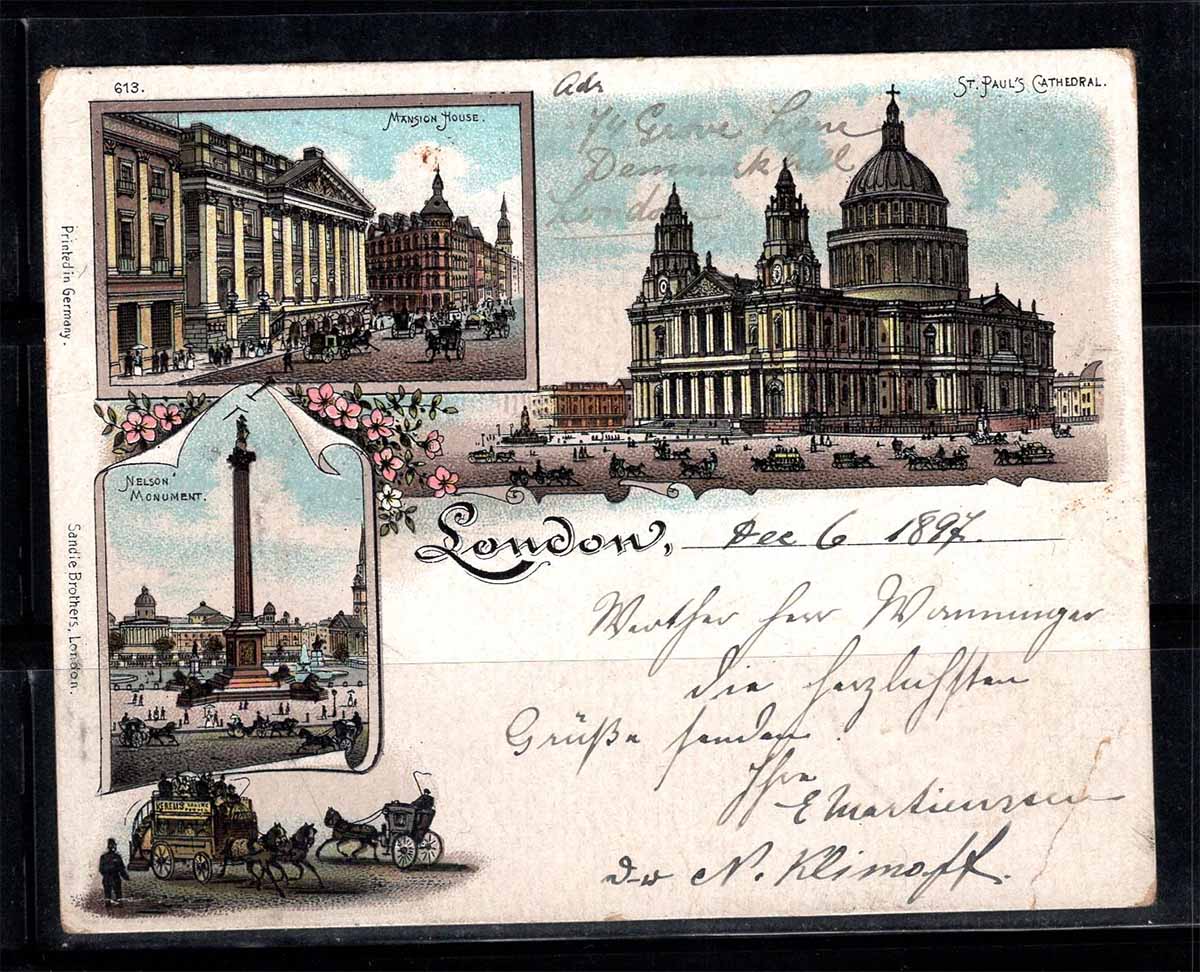 613.
MANSION HOUSE.
ST. PAUL'S CATHEDRAL.
Adr
74 Grove Lane
Denmark hill
London
Printed in Germany.
NELSON'
MONUMENT.
Sandle Brothers, London.
London, Dec 6 1897.
Werther Herr Wanninger
die herzlichsten
Grüße senden
Ihre
E Martienssen
N. Klimoff.